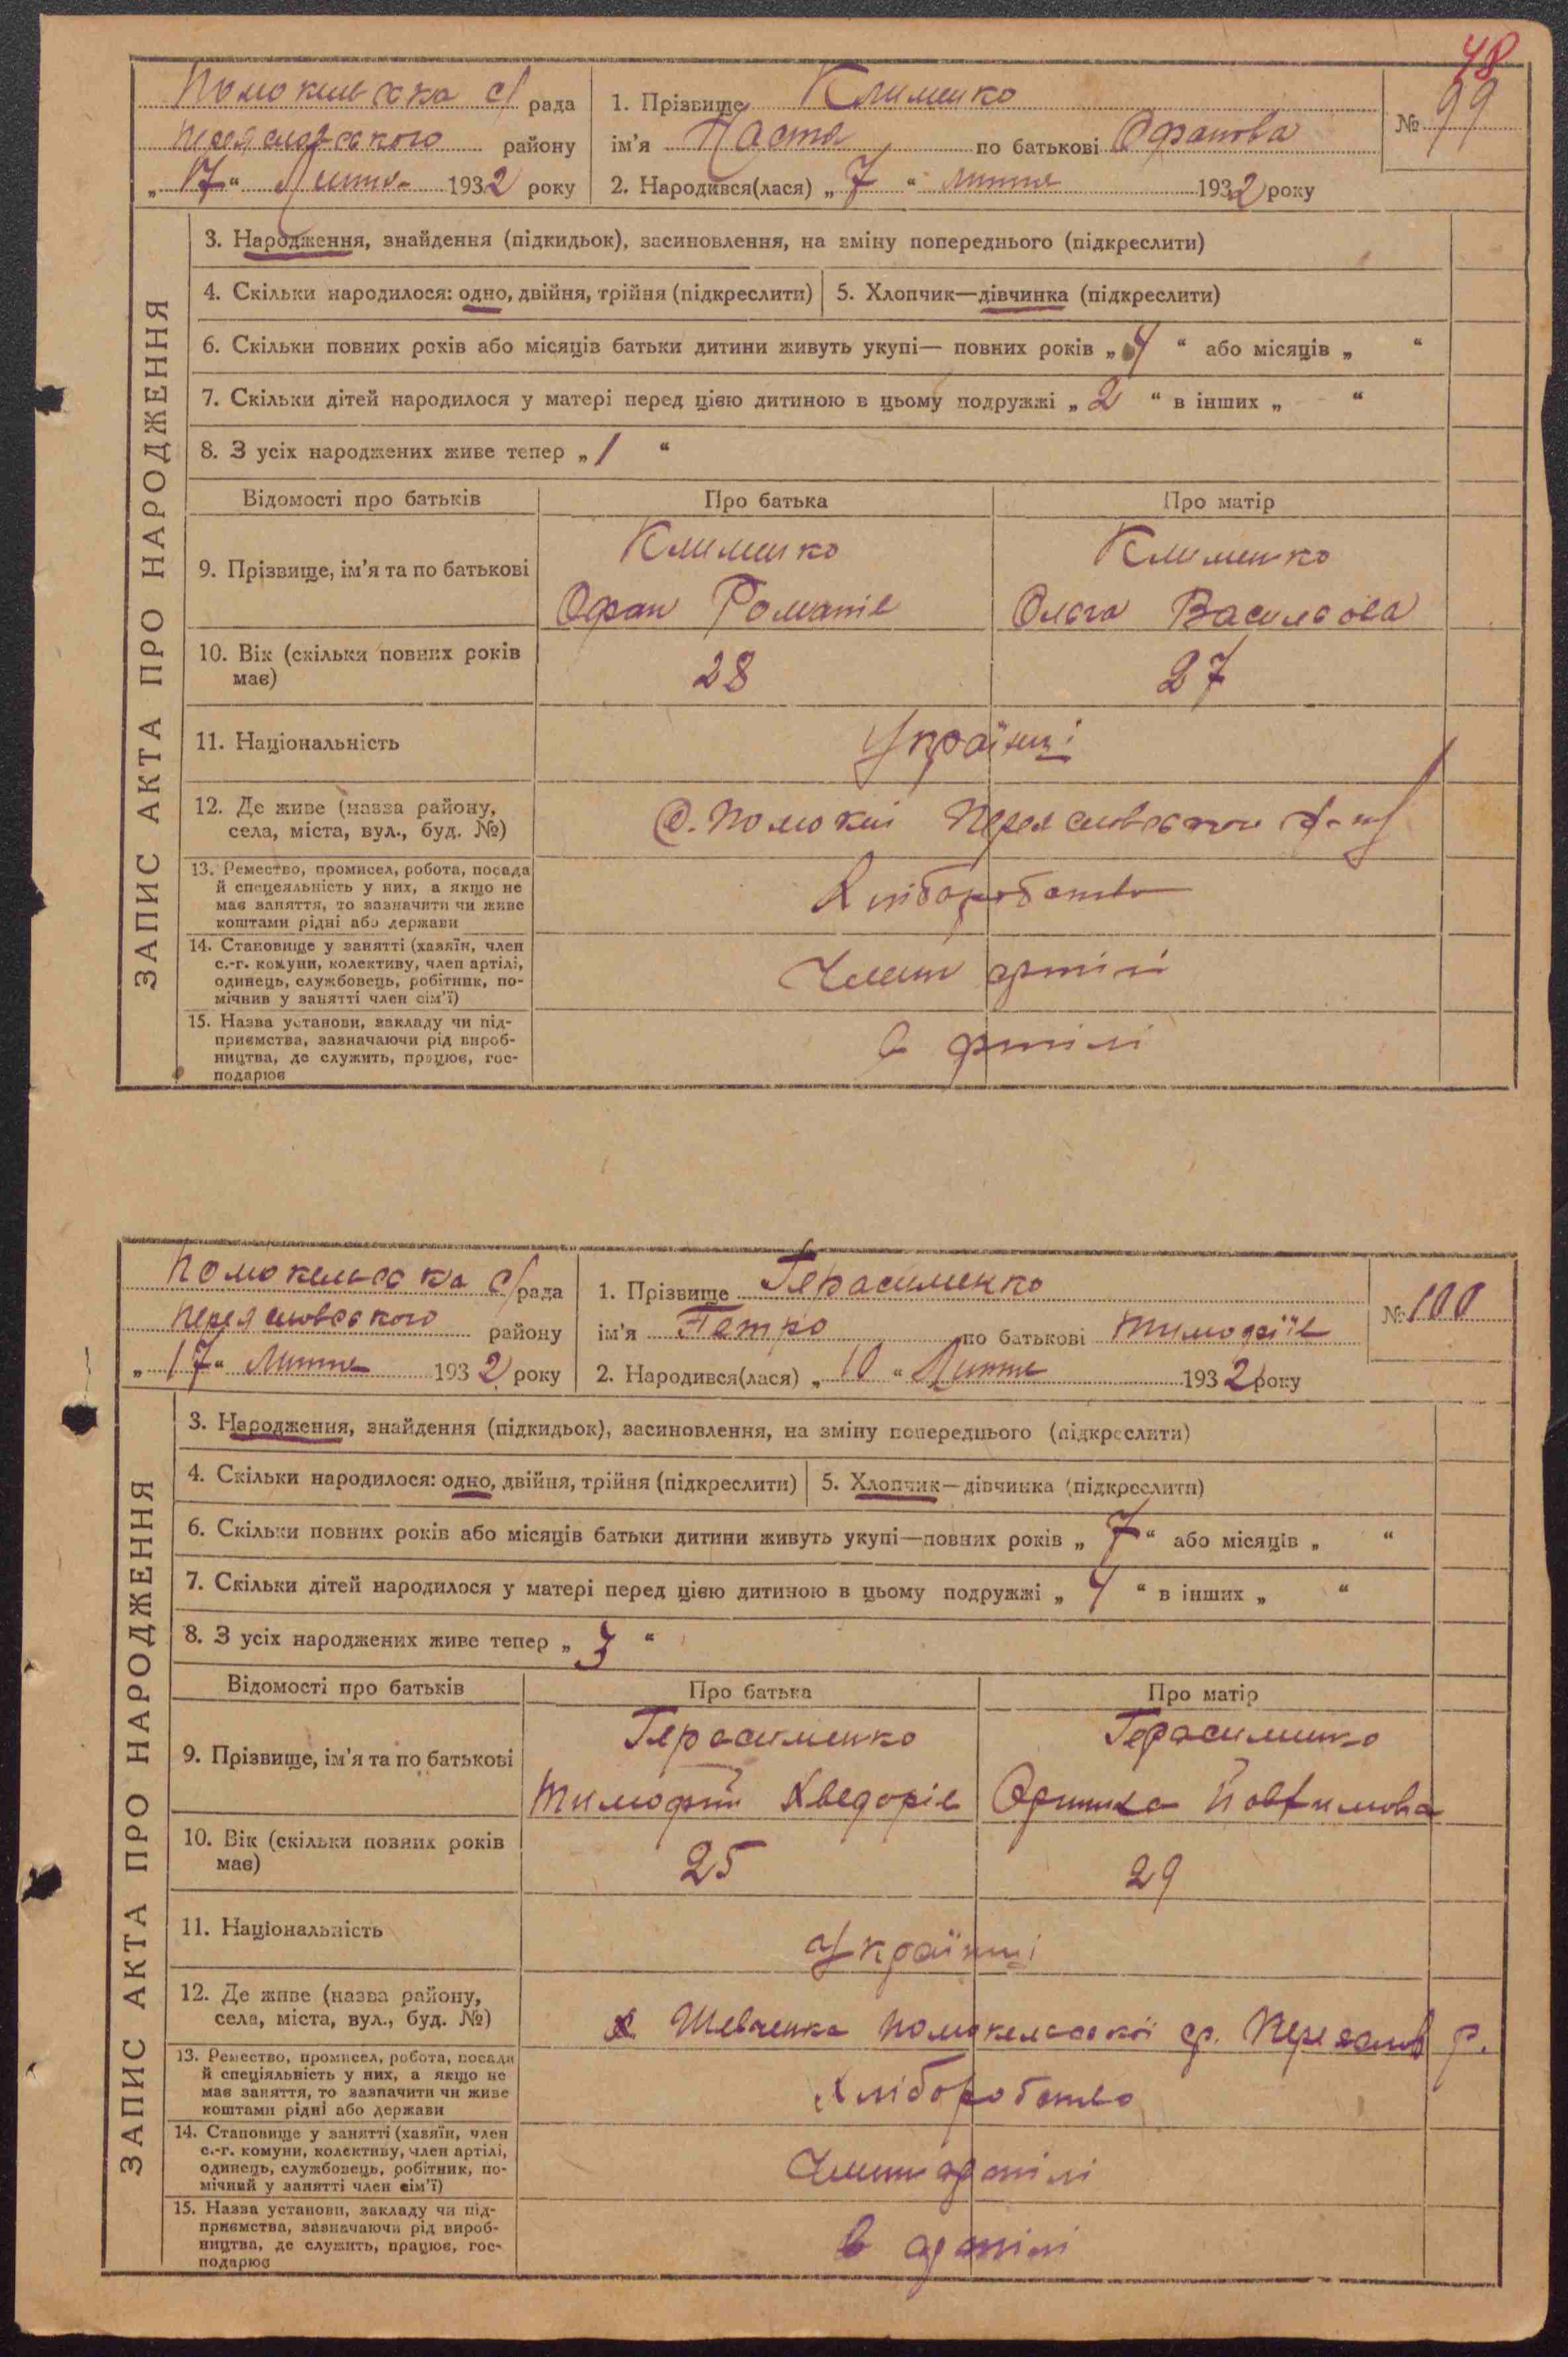 48
Помокельска с/рада
Переяславського району
„17“ Липня 1932 року
1. Прізвище Клименко
ім'я Настя по батькові Офанова
2. Народився(лася) „7“ липня 1932 року
№ 99
ЗАПИС АКТА ПРО НАРОДЖЕННЯ
3. Народження, знайдення (підкидьок), засиновлення, на зміну попереднього (підкреслити)
4. Скільки народилося: одно, двійня, трійня (підкреслити)
5. Хлопчик—дівчинка (підкреслити)
6. Скільки повних років або місяців батьки дитини живуть укупі— повних років „4“ або місяців „ “
7. Скільки дітей народилося у матері перед цією дитиною в цьому подружжі „2“ в інших „ “
8. З усіх народжених живе тепер „1“
Відомості про батьків
Про батька
Про матір
9. Прізвище, ім'я та по батькові
Клименко
Офан Романів
Клименко
Ольга Васильова
10. Вік (скільки повних років
має)
28
27
11. Національність
Українці
12. Де живе (назва району,
села, міста, вул., буд. №)
с. Помоклі Переяславського р-ну
13. Ремество, промисел, робота, посада
й спецеяльність у них, а якщо не
має заняття, то зазначити чи живе
коштами рідні або держави
Хліборобство
14. Становище у занятті (хазяїн, член
с.-г. комуни, колективу, член артілі,
одинець, службовець, робітник, по-
мічнив у занятті член сім'ї)
Члени артілі
15. Назва установи, закладу чи під-
приємства, зазначаючи рід вироб-
ництва, де служить, працює, гос-
подарює
в артілі
Помокельська с/рада
Переяславського району
„17“ Липня 1932 року
1. Прізвище Герасименко
ім'я Петро по батькові Тимофіїв
2. Народився(лася) „10“ Липня 1932 року
№ 100
ЗАПИС АКТА ПРО НАРОДЖЕННЯ
3. Народження, знайдення (підкидьок), засиновлення, на зміну попереднього (підкреслити)
4. Скільки народилося: одно, двійня, трійня (підкреслити)
5. Хлопчик—дівчинка (підкреслити)
6. Скільки повних років або місяців батьки дитини живуть укупі—повних років „7“ або місяців „ “
7. Скільки дітей народилося у матері перед цією дитиною в цьому подружжі „4“ в інших „ “
8. З усіх народжених живе тепер „3“
Відомості про батьків
Про батька
Про матір
9. Прізвище, ім'я та по батькові
Герасименко
Тимофій Хведорів
Герасименко
Оришка Йовхимова
10. Вік (скільки повних років
має)
25
29
11. Національність
Українці
12. Де живе (назва району,
села, міста, вул., буд. №)
х. Шевченка Помокельської ср. Переяслів р.
13. Ремество, промисел, робота, посада
й спеціяльність у них, а якщо не
має заняття, то зазначити чи живе
коштами рідні або держави
Хліборобство
14. Становище у занятті (хазяїн, член
с.-г. комуни, колективу, член артілі,
одинець, службовець, робітник, по-
мічний у занятті член сім'ї)
Члени артілі
15. Назва установи, закладу чи під-
приємства, зазначаючи рід вироб-
ництва, де служить, працює, гос-
подарює
в артілі